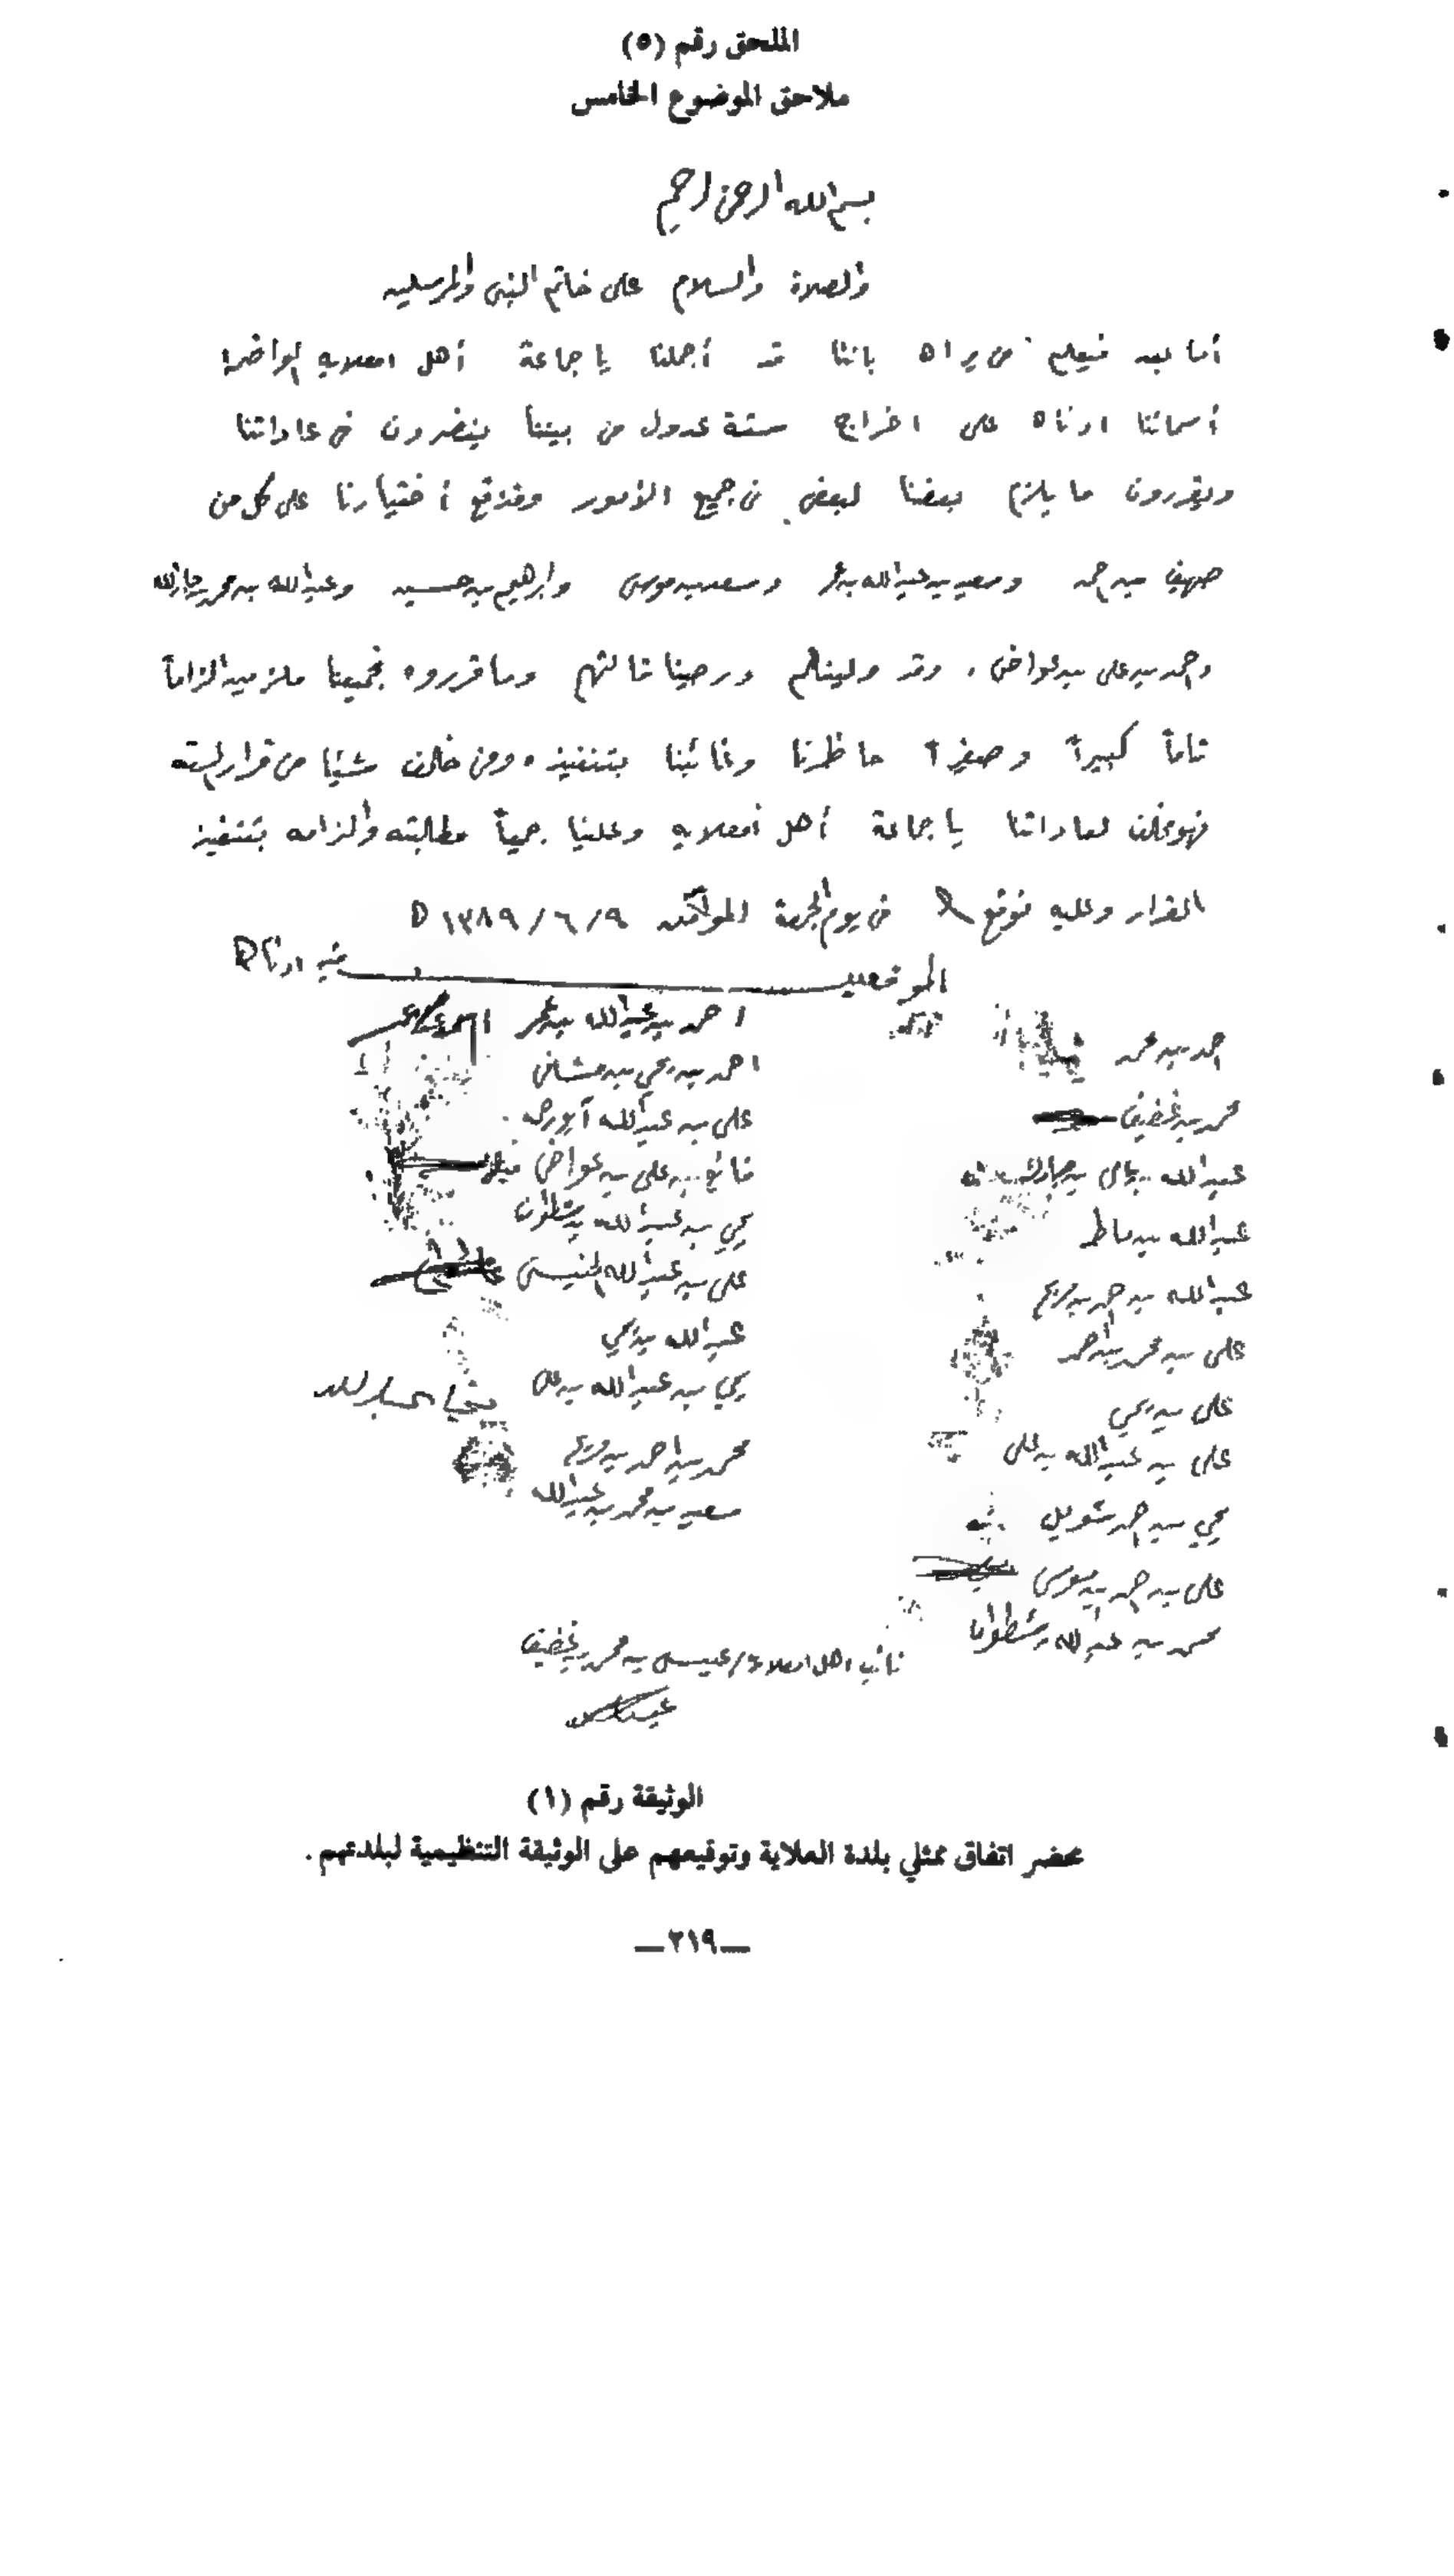 الملحق رقم (٥)
ملاحق الموضوع الخامس
بسم الله الرحمن الرحيم
والصلاة والسلام على خاتم النبي والمرسلين
أما بعد فيعلم من يراه باننا قد أجملنا يا جماعة أهل امعلايه الواضحة
أسمائنا ادناه على اخراج ستة عدول من بيننا ينضرون في عاداتنا
ويقررون ما يلزم بعضنا لبعض في جميع الأمور وقد وقع أختيارنا على كل من
بن حمد وسعيد بن عبدالله بن عمر وسعد بن موسى وابراهيم بن حسين وعبدالله بن محمد بن جارالله
وحمد بن علي بن عواض، وقد وليناهم ورضينا قالتهم وما قرروه فجميعنا ملزمين الزاماً
تاماً كبيراً وصغيراً حاظرنا وغائبنا بتنفيذه ومن خالف شيئا من قرار السته
فهو مخالف لعاداتنا يا جماعة أهل أمعلايه وعلينا جميعاً مطالبته والزامه بتنفيذ
القرار وعليه نوقع في يوم الجمعة الموافق ١٣٨٩/٦/٩ ه
الموقعين فيه ادناه
احمد بن عبدالله بن عمر
احمد بن يحي بن مشافى
علي بن عبدالله
علي بن عواض
يحي بن عبدالله بن شطوان
علي بن عبدالله
عبدالله بن يحي
يحي بن عبدالله بن علي
محمد بن احمد بن مريع
سعيد بن محمد بن عبدالله
احمد بن محمد
محمد بن غضيف
عبدالله بن مبارك
عبدالله بن ماطر
عبدالله بن حمد بن مريع
علي بن محمد بن احمد
علي بن يحي
علي بن عبدالله بن علي
يحي بن احمد شويل
علي بن حمد بن موسى
عبدالله بن شطوان
نائب اهل امعلايه / عيسى بن محمد بن غضيف
الوثيقة رقم (١)
محضر اتفاق ممثلي بلدة العلاية وتوقيعهم على الوثيقة التنظيمية لبلدتهم .
—٢١٩—